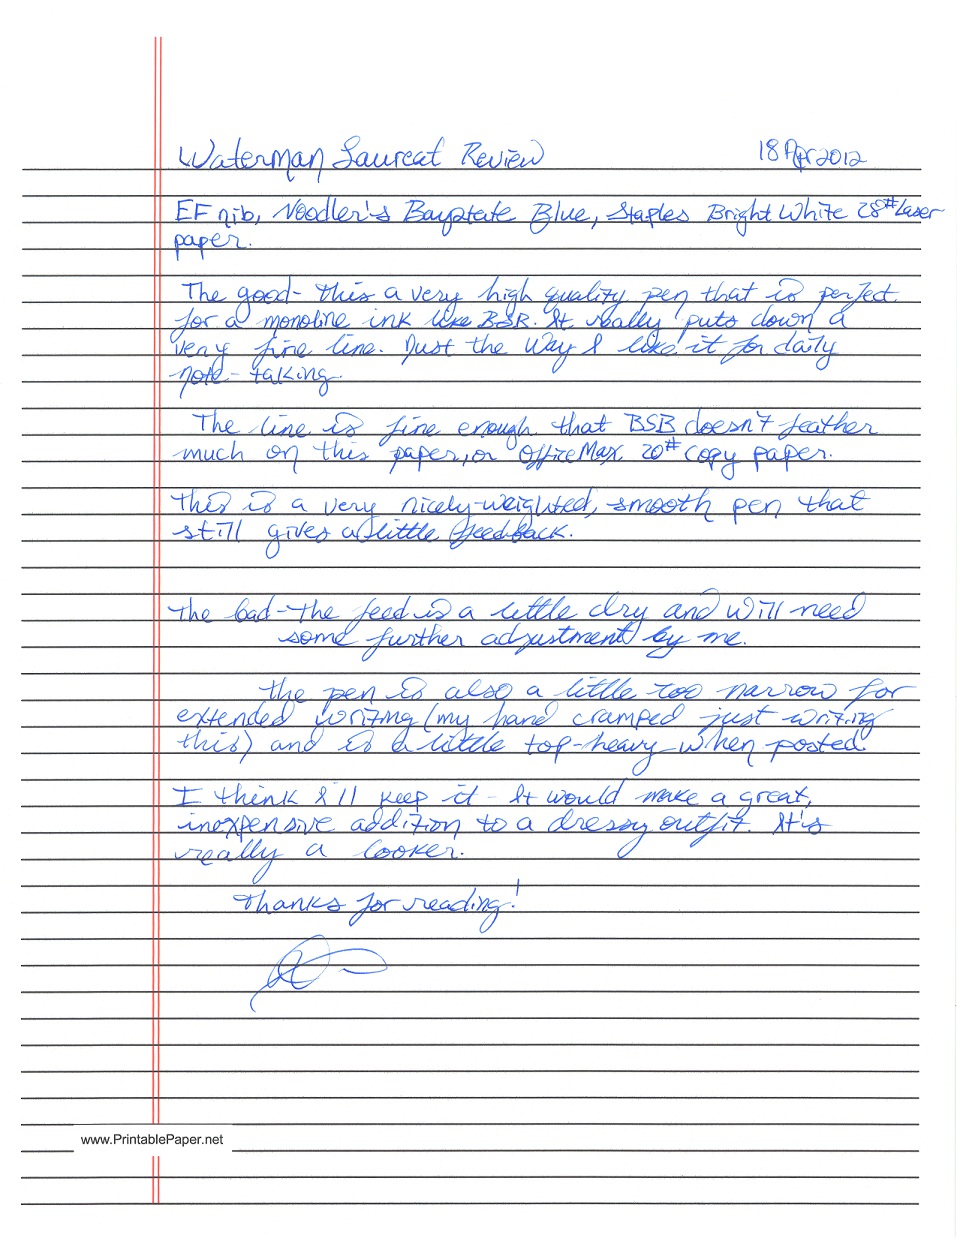 Waterman Laureat Review 18 Apr 2012
EF nib, Noodler's Baystate Blue, Staples Bright White 28# Laser
paper.
The good - this a very high quality pen that is perfect
for a monoline ink like BSB. It really puts down a
very fine line. Just the way I like it for daily
note-taking.
The line is fine enough that BSB doesn't feather
much on this paper, or OfficeMax 20# copy paper.
This is a very nicely-weighted, smooth pen that
still gives a little feedback.
The bad - the feed is a little dry and will need
some further adjustment by me.
The pen is also a little too narrow for
extended writing (my hand cramped just writing
this) and is a little top-heavy when posted.
I think I'll keep it - It would make a great,
inexpensive addition to a dressy outfit. It's
really a looker.
Thanks for reading!
www.PrintablePaper.net